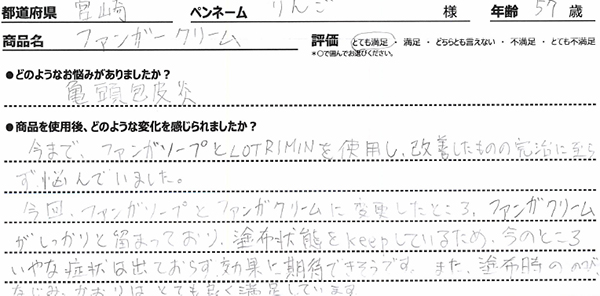 都道府県 宮崎 ペンネーム りんご 様 年齢 57 歳
商品名 ファンガークリーム 評価 とても満足・満足・どちらとも言えない・不満足・とても不満足
*○で囲んでお選びください。
●どのようなお悩みがありましたか？
亀頭包皮炎
●商品を使用後、どのような変化を感じられましたか？
今まで、ファンガソープとLOTRIMINを使用し、改善したものの完治に至ら
ず悩んでいました。
今回、ファンガソープとファンガクリームに変更したところ、ファンガクリーム
がしっかりと留まっており、塗布状態をkeepしているため、今のところ
いやな症状は出ておらず、効果に期待できそうです。また、塗布時ののび、
なじみ、かおりはとても良く満足しています。